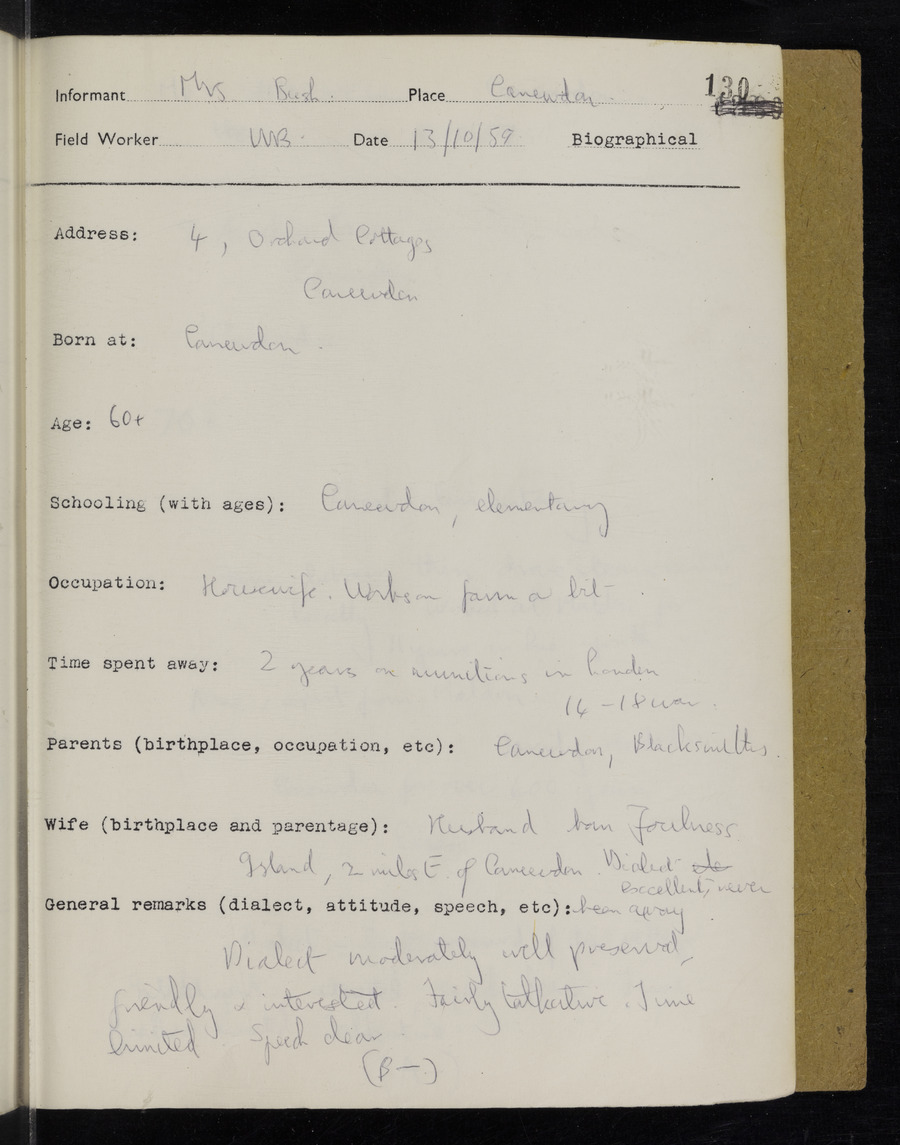 Informant Mrs Bush. Place Canewdon. 130
Field Worker WB. Date 13/10/59 Biographical
Address: 4, Orchard Cottages
Canewdon
Born at: Canewdon.
Age: 60+
Schooling (with ages): Canewdon, elementary
Occupation: Housewife. Works on farm a bit.
Time spent away: 2 years on munitions in London
14-18 war.
Parents (birthplace, occupation, etc): Canewdon, Blacksmiths.
Wife (birthplace and parentage): Husband born Foulness
Island, 2 miles E. of Canewdon. Dialect
excellent, never
General remarks (dialect, attitude, speech, etc): been away
Dialect moderately well preserved,
friendly & interested. Fairly talkative. Time
limited. Speech clear.
(B-)